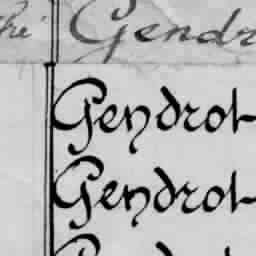 the Gendr
Gendrot
Gendrot